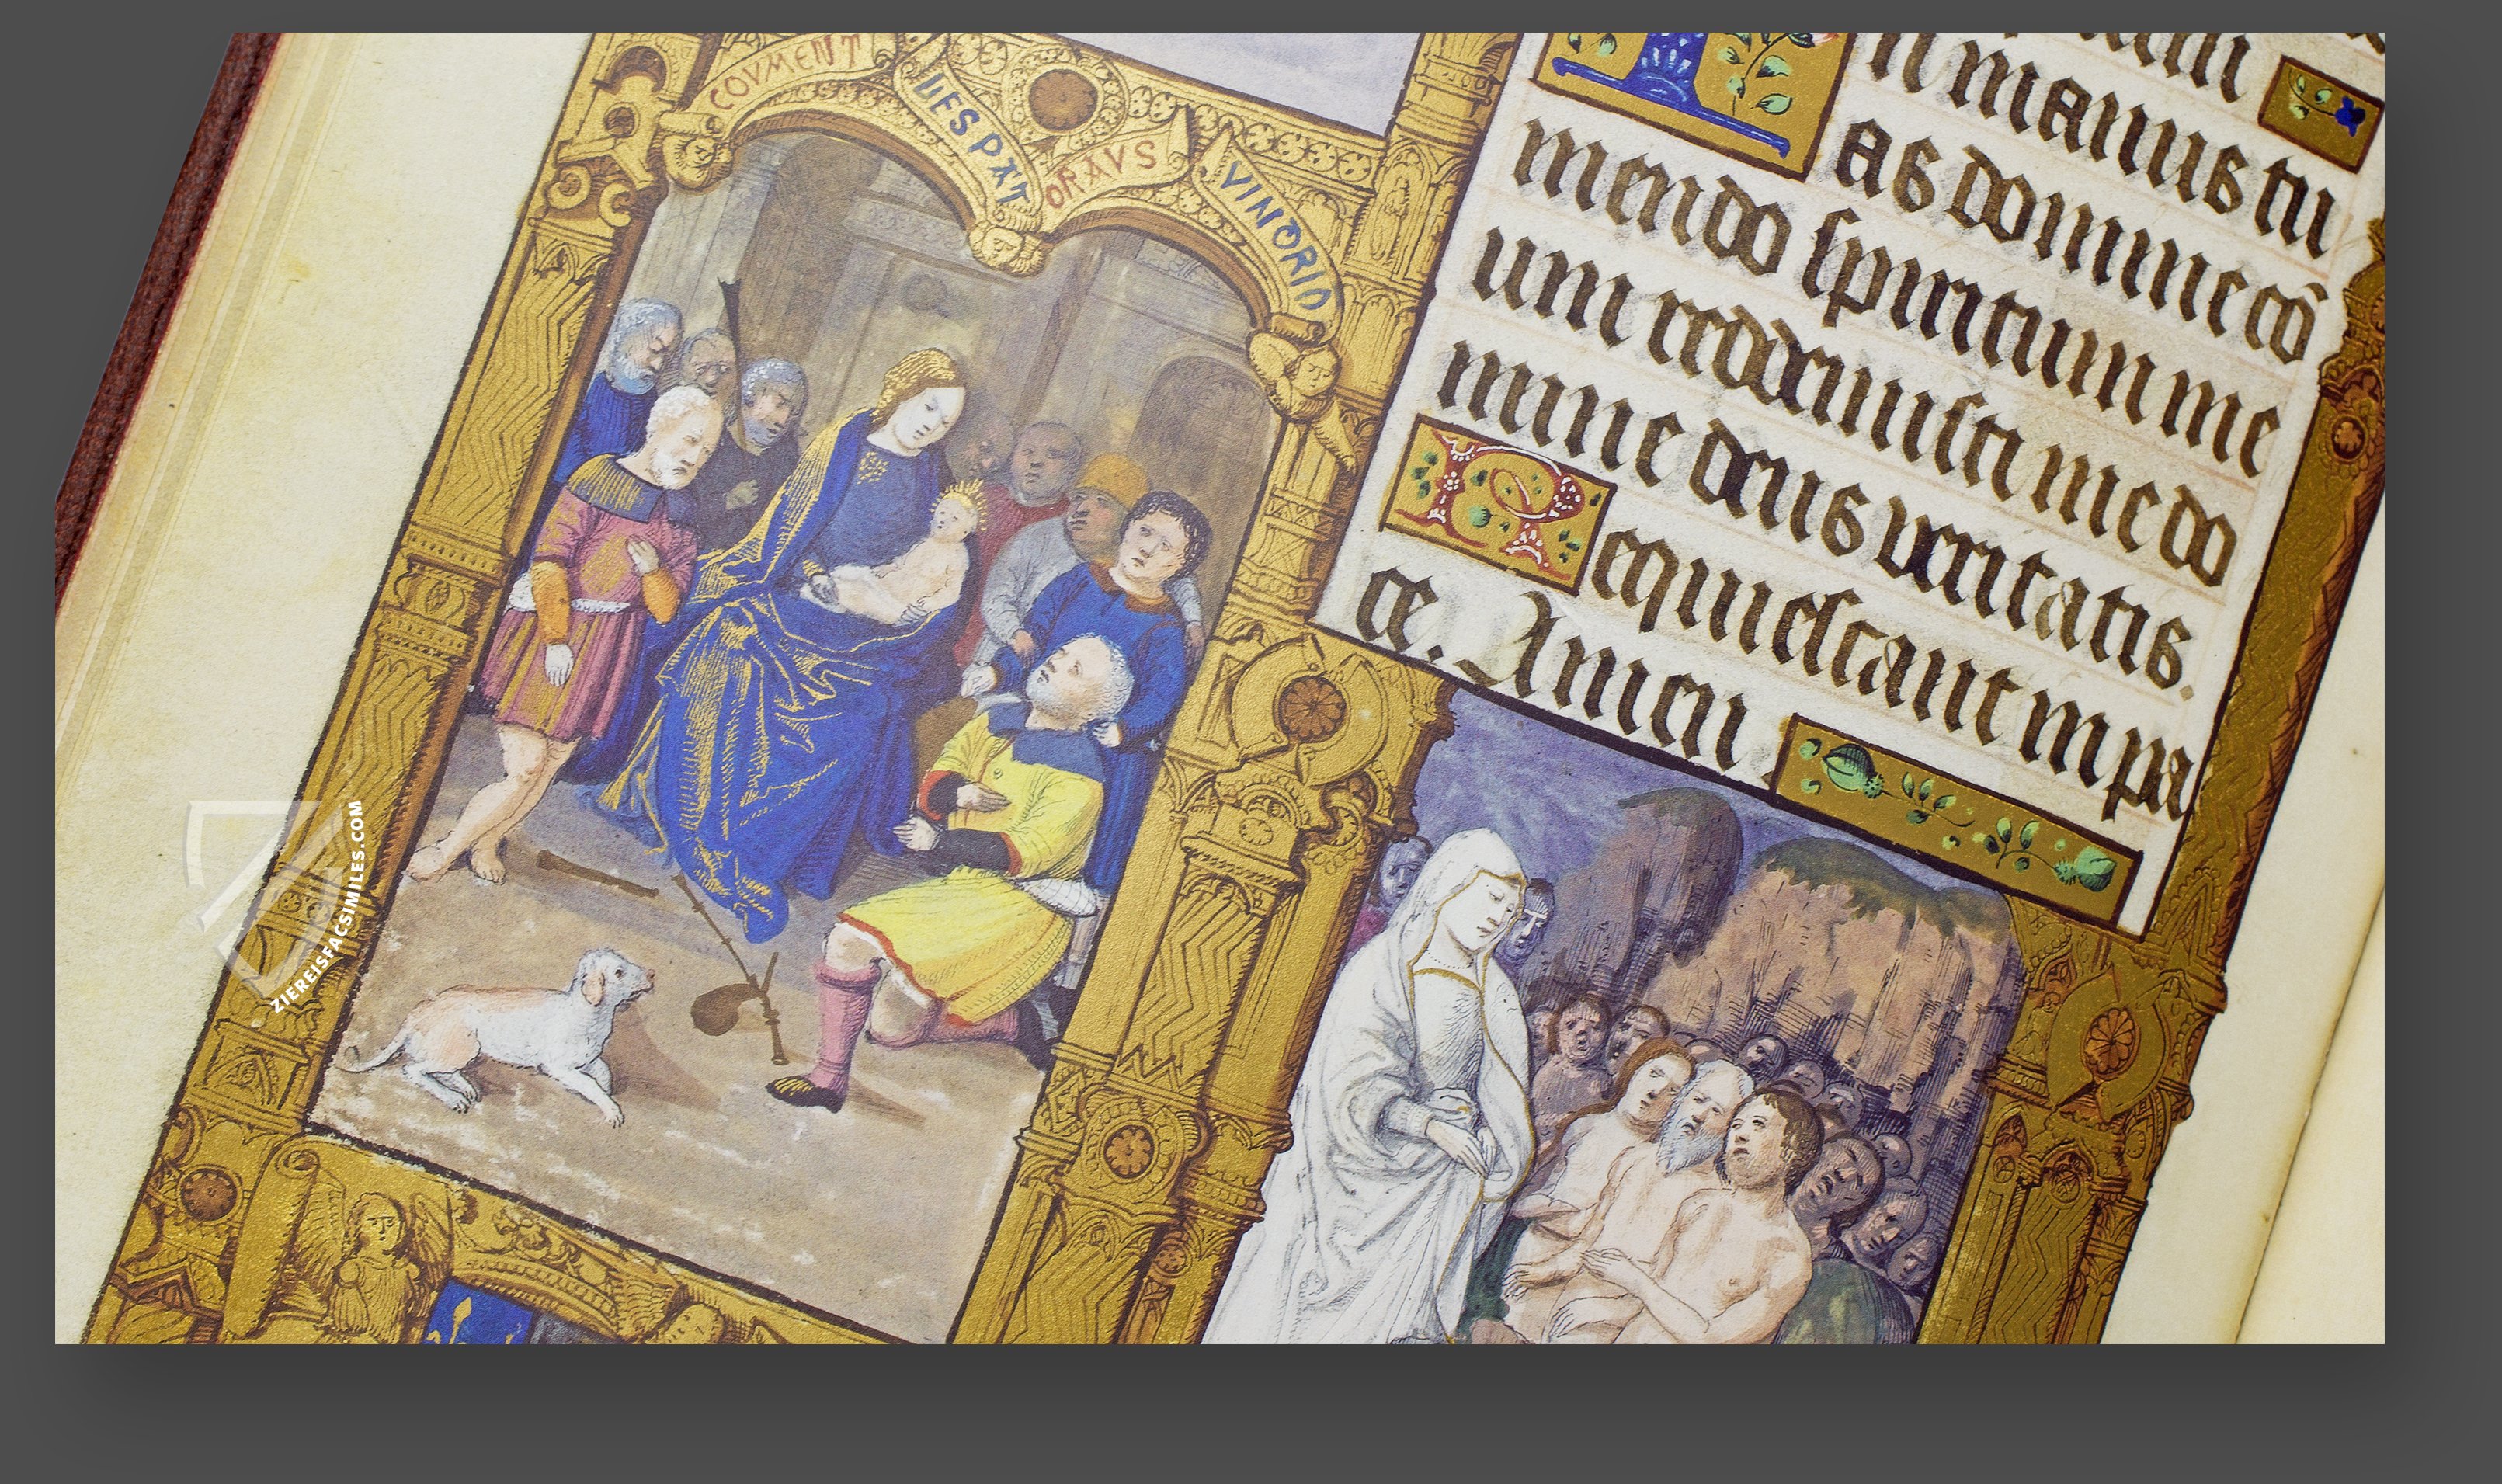 COVMENT
LES PAT
ORAVS
VINDRID
In manus tu
as domine cō
mendo spiritum me
um redemisti me do
mine deus veritatis.
Requiescant in pa
ce. Amen
ZIEREISFACSIMILES.COM